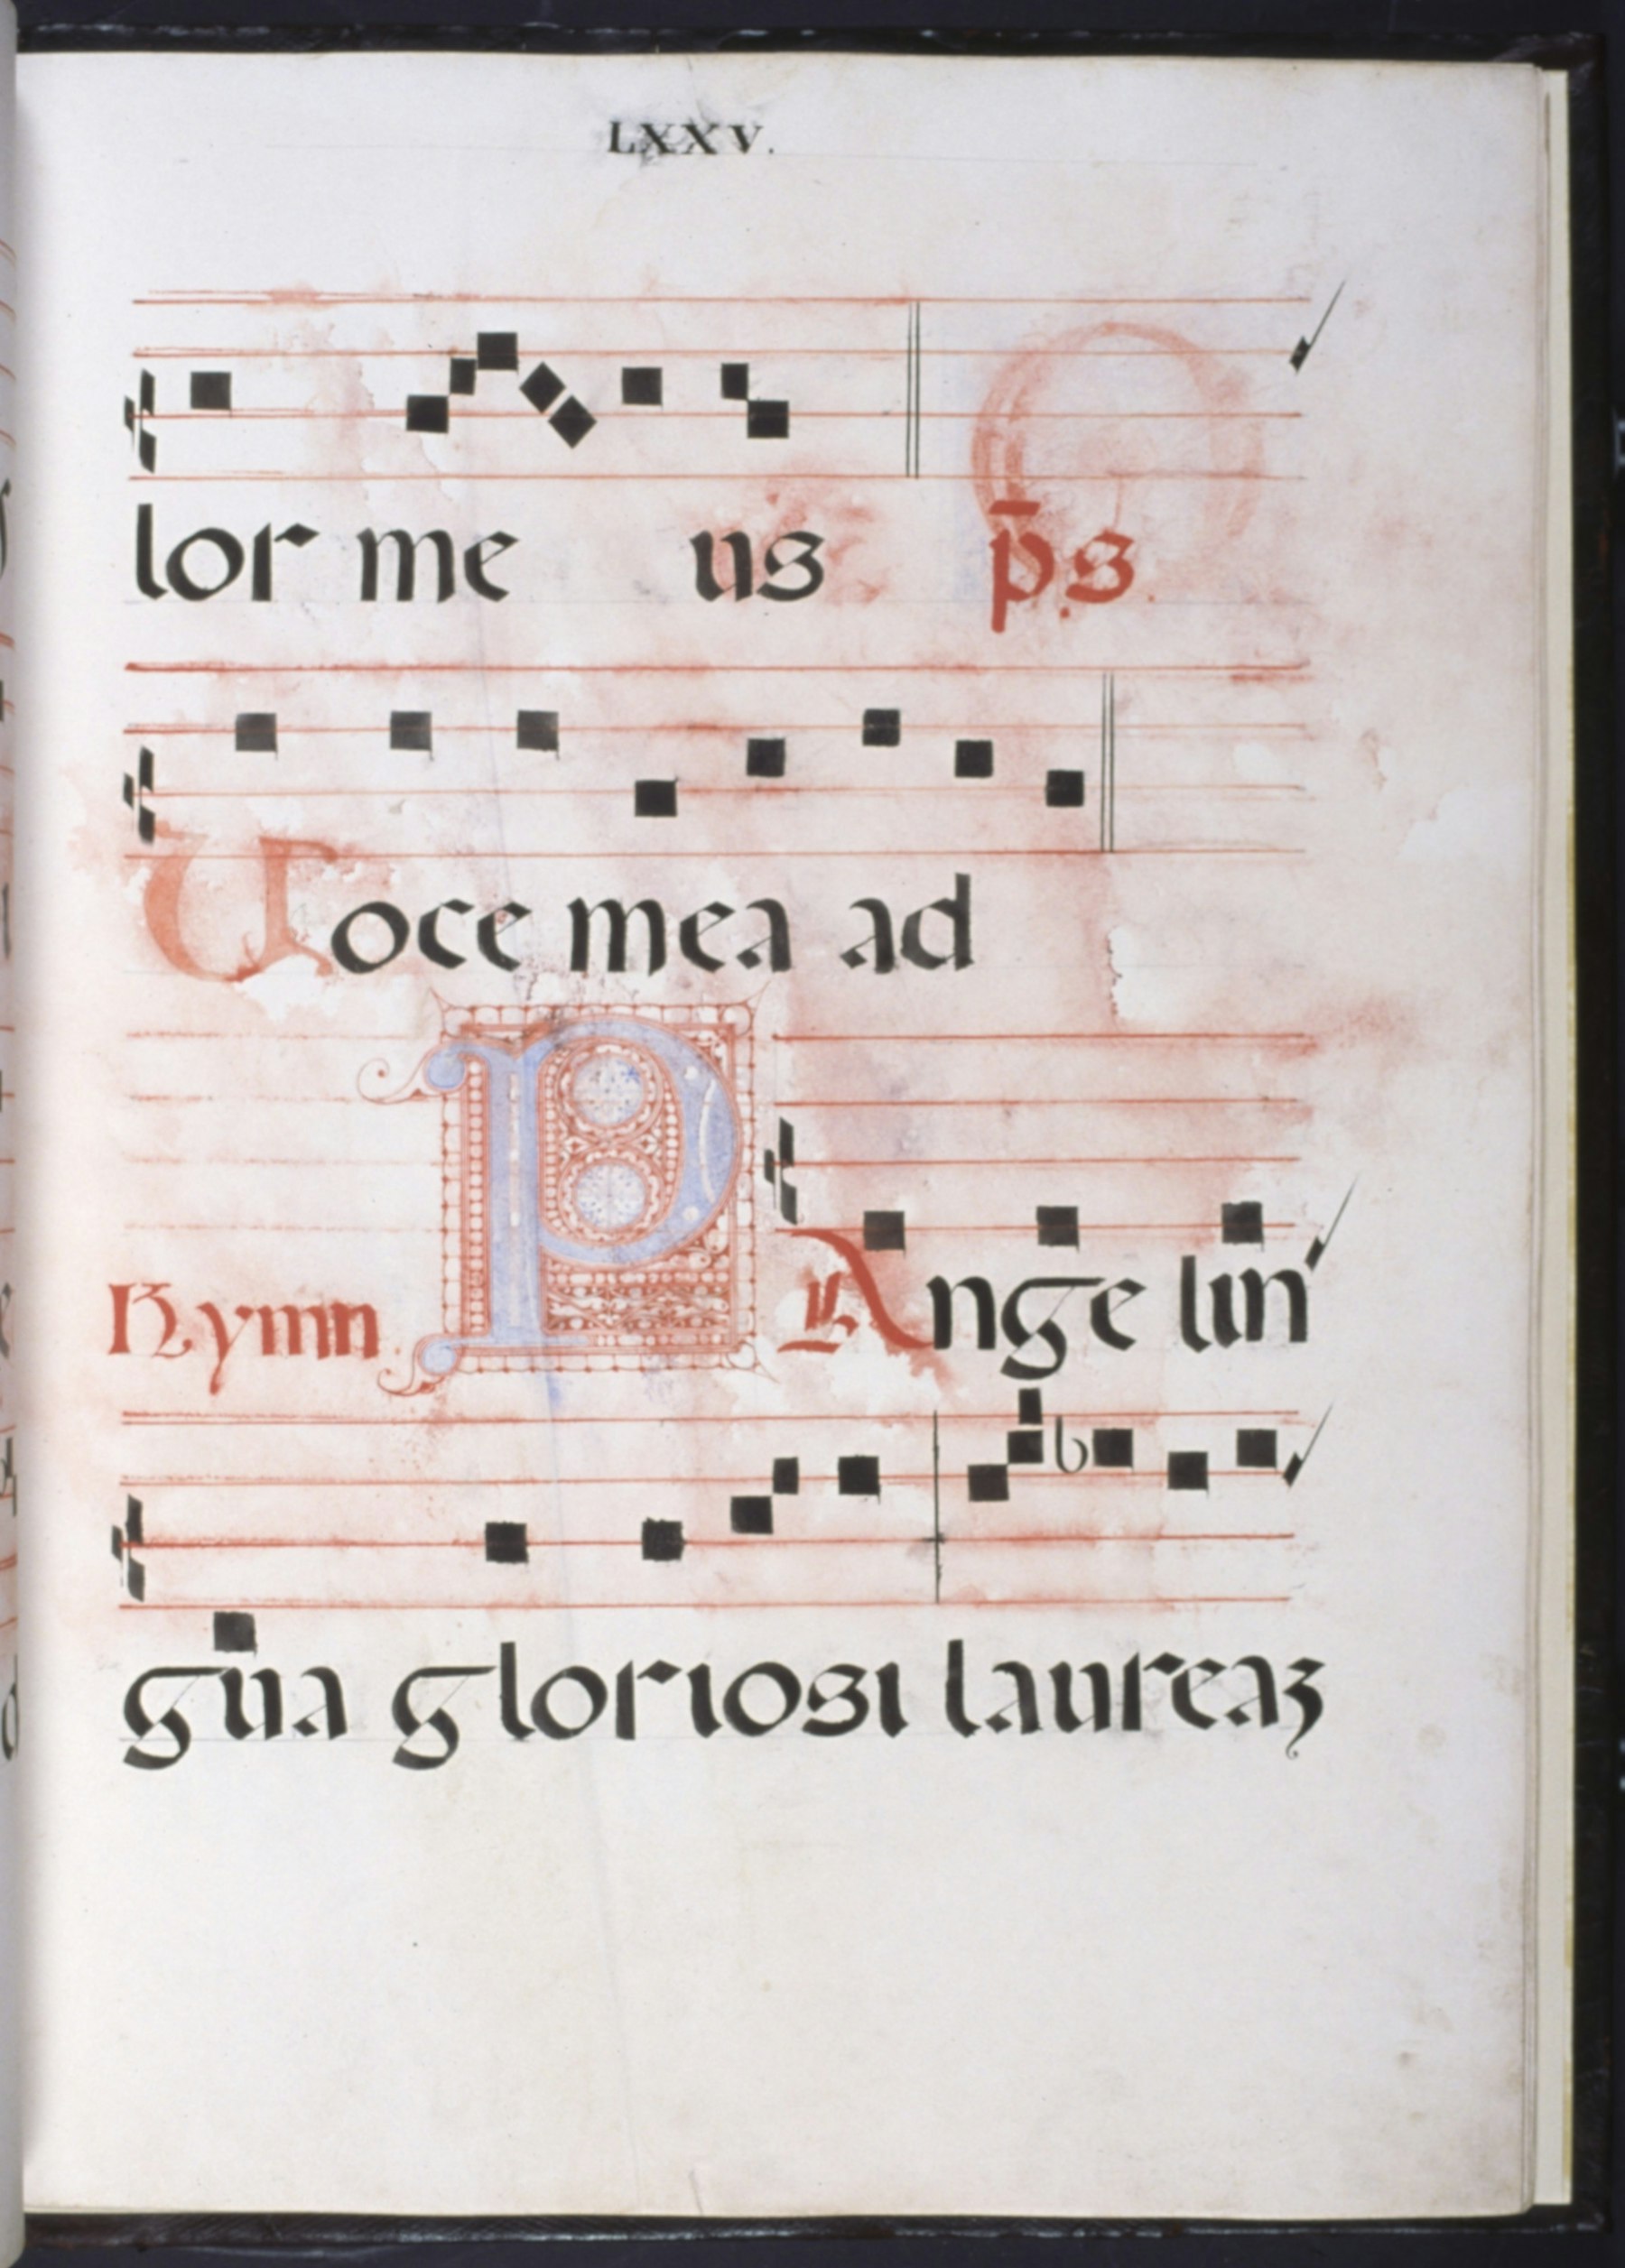 LXXV.
lor me us p̄s.
Voce mea ad
Hymn. PAnge lin
gua gloriosi laureaʒ